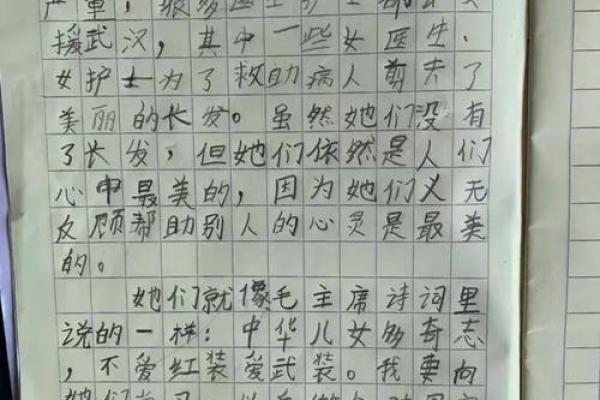 严重，很多医生护士都去支
援武汉，其中一些女医生、
女护士为了救助病人剪去了
美丽的长发。虽然她们没有
了长发，但她们依然是人们
心中最美的，因为她们义无
反顾帮助别人的心灵是最美
的。
她们就像毛主席诗词里
说的一样：中华儿女多奇志
，不爱红装爱武装。我要向
她们学习，